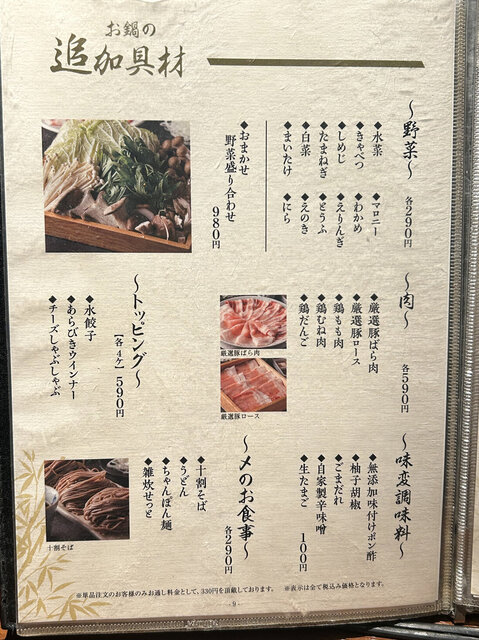 お鍋の
追加具材
～野菜～
各290円
◆水菜
◆きゃべつ
◆しめじ
◆たまねぎ
◆白菜
◆まいたけ
◆マロニー
◆わかめ
◆えりんぎ
◆とうふ
◆えのき
◆にら
◆おまかせ
野菜盛り合わせ
980円
～肉～
各590円
◆厳選豚ばら肉
◆厳選豚ロース
◆鶏もも肉
◆鶏むね肉
◆鶏だんご
厳選豚ばら肉
厳選豚ロース
～トッピング～
【各4ケ】590円
◆水餃子
◆あらびきウインナー
◆チーズしゃぶしゃぶ
～味変調味料～
◆無添加味付けポン酢
◆柚子胡椒
◆ごまだれ
◆自家製辛味噌
◆生たまご 100円
～〆のお食事～
各290円
◆十割そば
◆うどん
◆ちゃんぽん麺
◆雑炊せっと
十割そば
※単品注文のお客様のみお通し料金として、330円を頂戴しております。 ※表示は全て税込み価格となります。
- 9 -